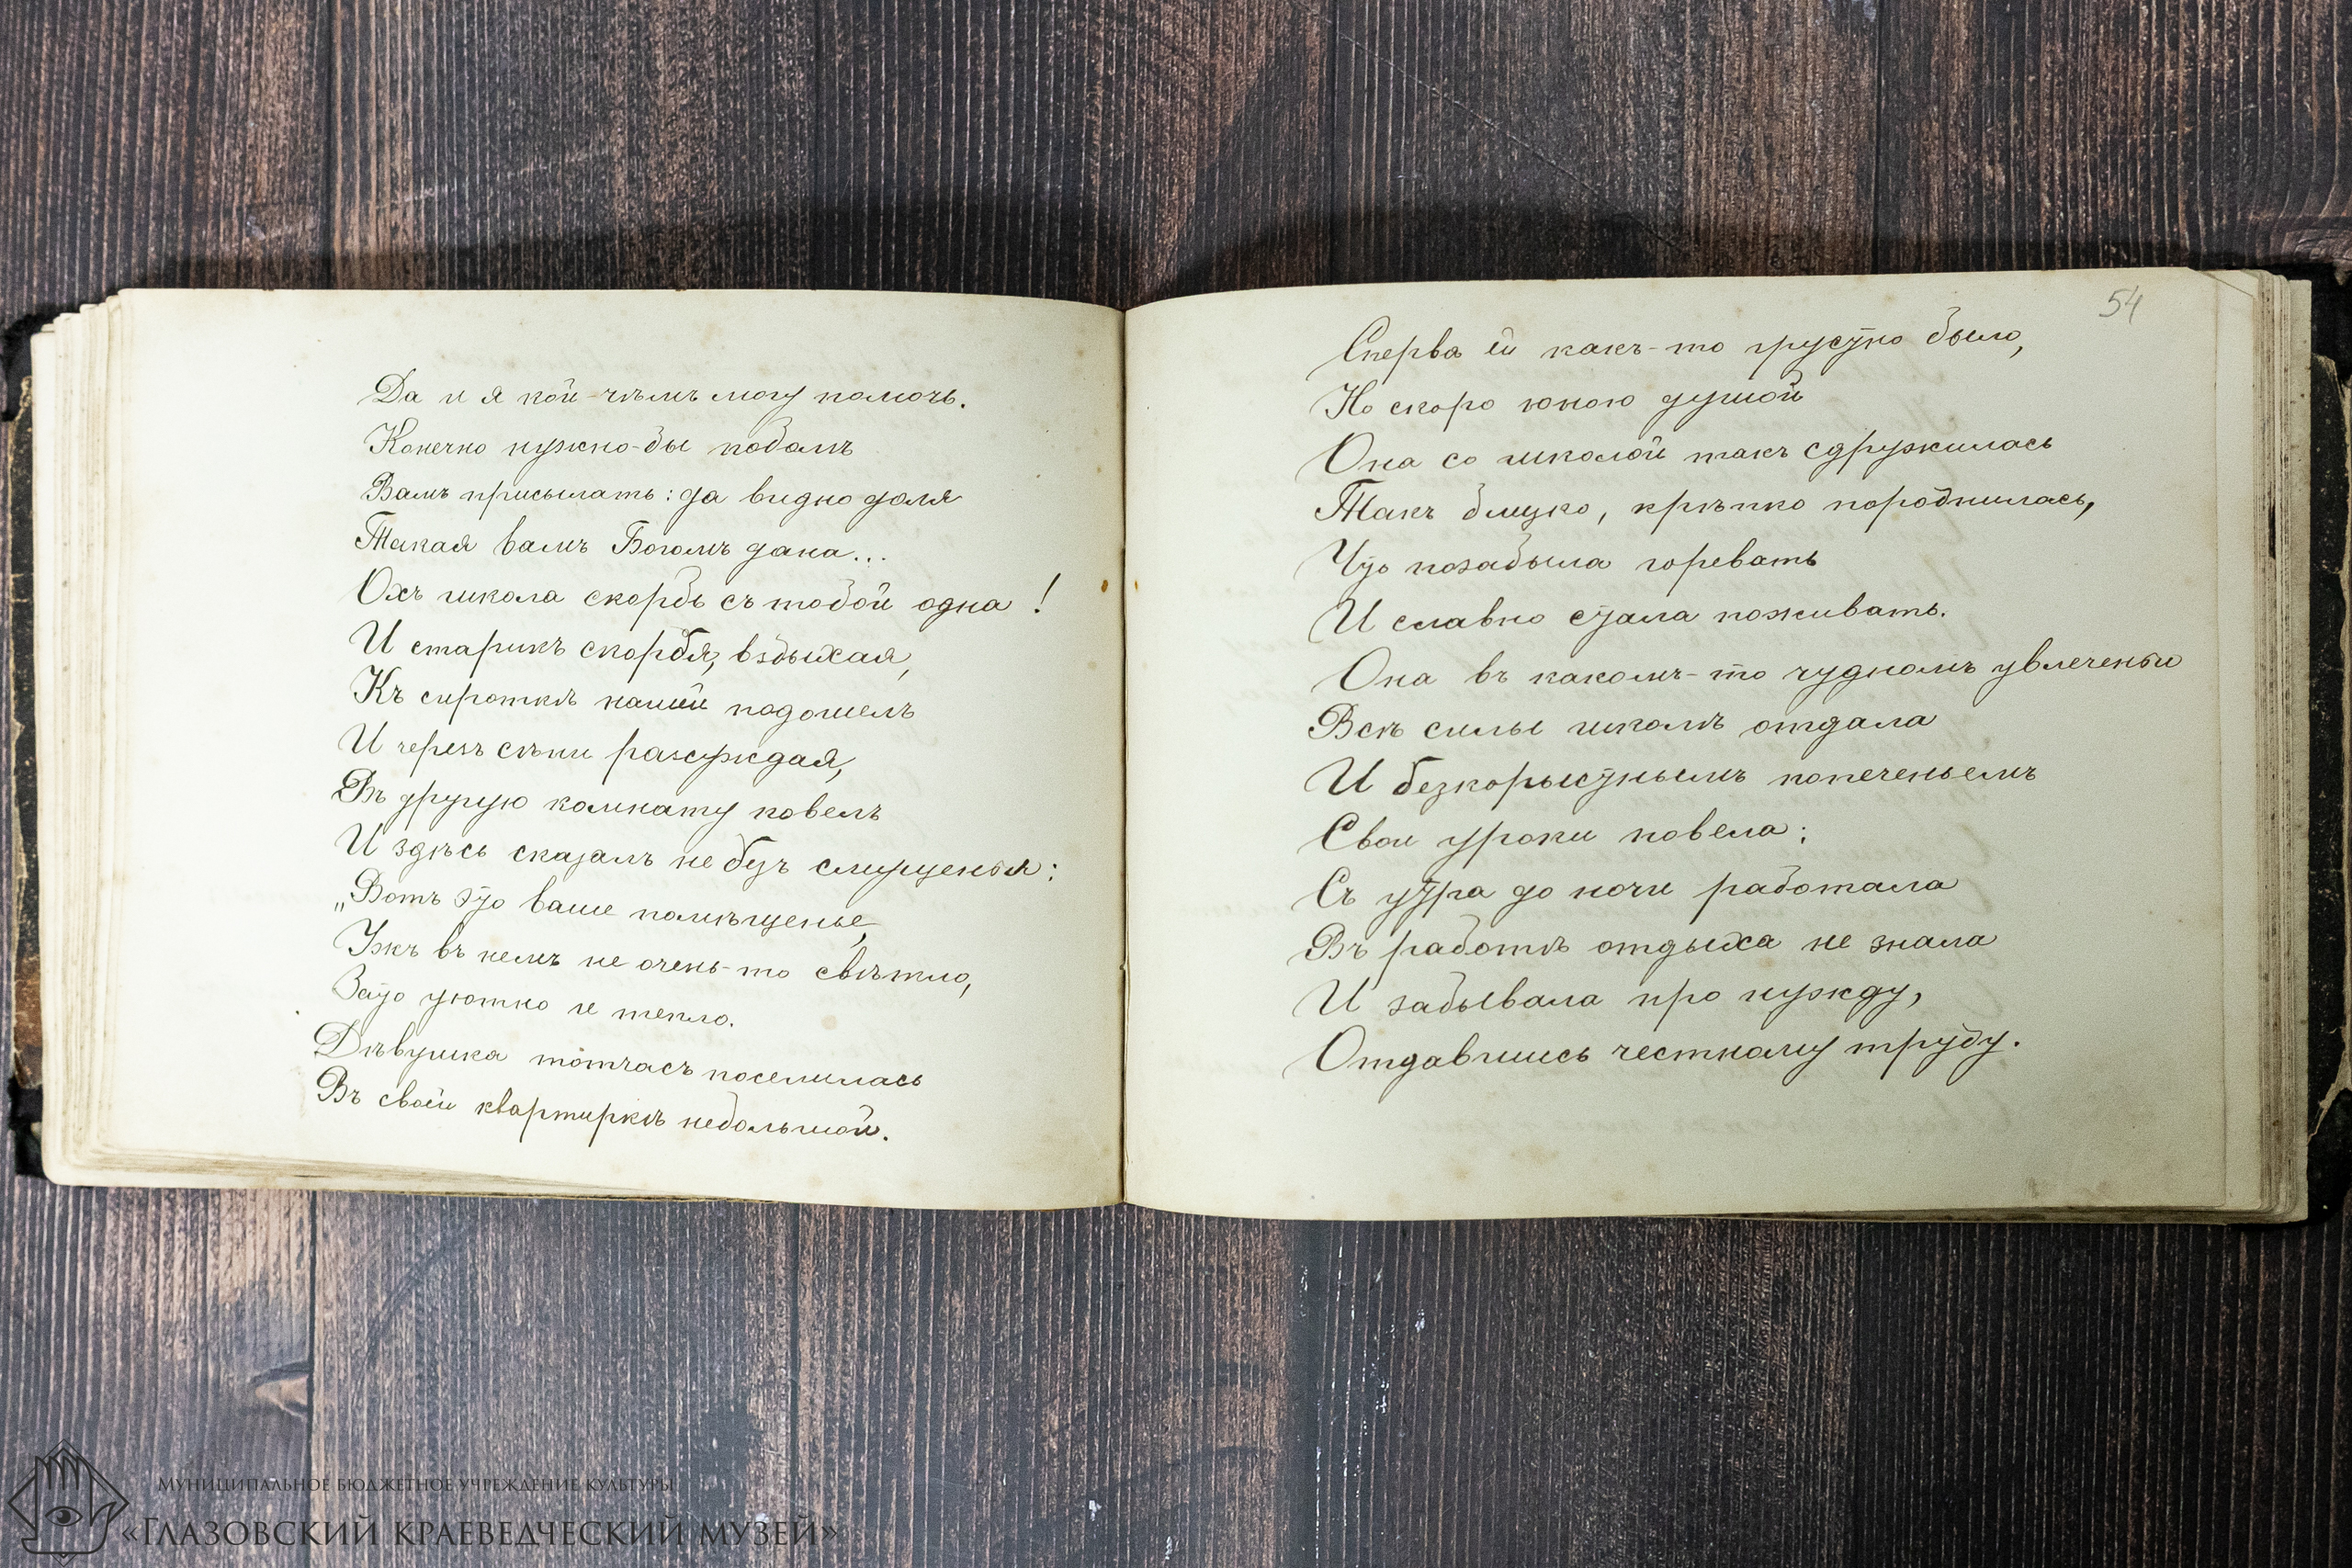 Да и я кой-чѣмъ могу помочь.
Конечно нужно-бы подомъ
Вамъ присылать: да видно доля
Такая вамъ Богомъ дана...
Охъ школа скорбь съ тобой одна!
И старикъ скорбя, вздыхая,
Къ сироткѣ нашей подошелъ
И черезъ сѣни разсуждая,
Въ другую комнату повелъ
И здѣсь сказалъ не безъ смущенья:
„Вотъ это ваше помѣщенье,
Ужъ въ немъ не очень-то свѣтло,
Зато уютно и тепло.
Дѣвушка тотчасъ поселилась
Въ своей квартиркѣ небольшой.
54
Сперва ей какъ-то грустно было,
Но скоро юною душой
Она со школой такъ сдружилась
Такъ близко, крѣпко породнилась,
Что позабыла горевать
И славно стала поживать.
Она въ какомъ-то чудномъ увлеченьи
Всѣ силы школѣ отдала
И безкорыстнымъ попеченьемъ
Свои уроки повела:
Съ утра до ночи работала
Въ работѣ отдыха не знала
И забывала про нужду,
Отдавшись честному труду.
Муниципальное бюджетное учреждение культуры
«Глазовский краеведческий музей»